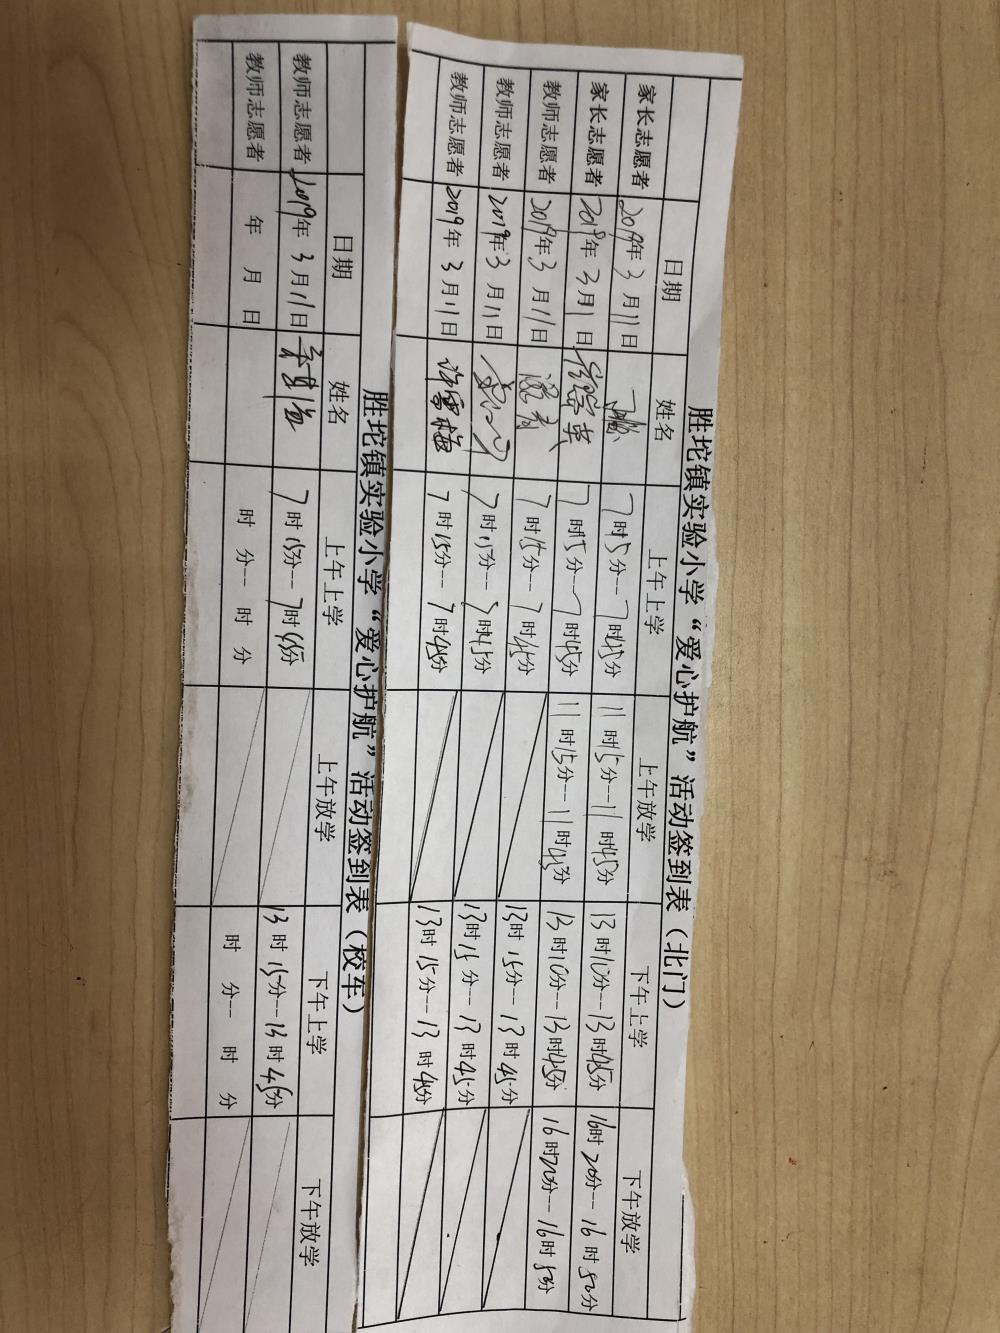 胜坨镇实验小学“爱心护航”活动签到表（北门）
日期 姓名 上午上学 上午放学 下午上学 下午放学
家长志愿者 2019年3月11日 7时15分--7时45分 11时15分--11时45分 13时10分--13时45分 16时20分--16时50分
家长志愿者 2019年3月11日 英 7时15分--7时45分 11时15分--11时45分 13时10分--13时45分 16时20分--16时50分
教师志愿者 2019年3月11日 7时15分--7时45分 13时15分--13时45分
教师志愿者 2019年3月11日 7时15分--7时45分 13时15分--13时45分
教师志愿者 2019年3月11日 许雪梅 7时15分--7时45分 13时15分--13时45分
胜坨镇实验小学“爱心护航”活动签到表（校车）
日期 姓名 上午上学 上午放学 下午上学 下午放学
教师志愿者 2019年3月11日 7时15分--7时45分 13时15分--13时45分
教师志愿者 年 月 日 时 分-- 时 分 时 分-- 时 分